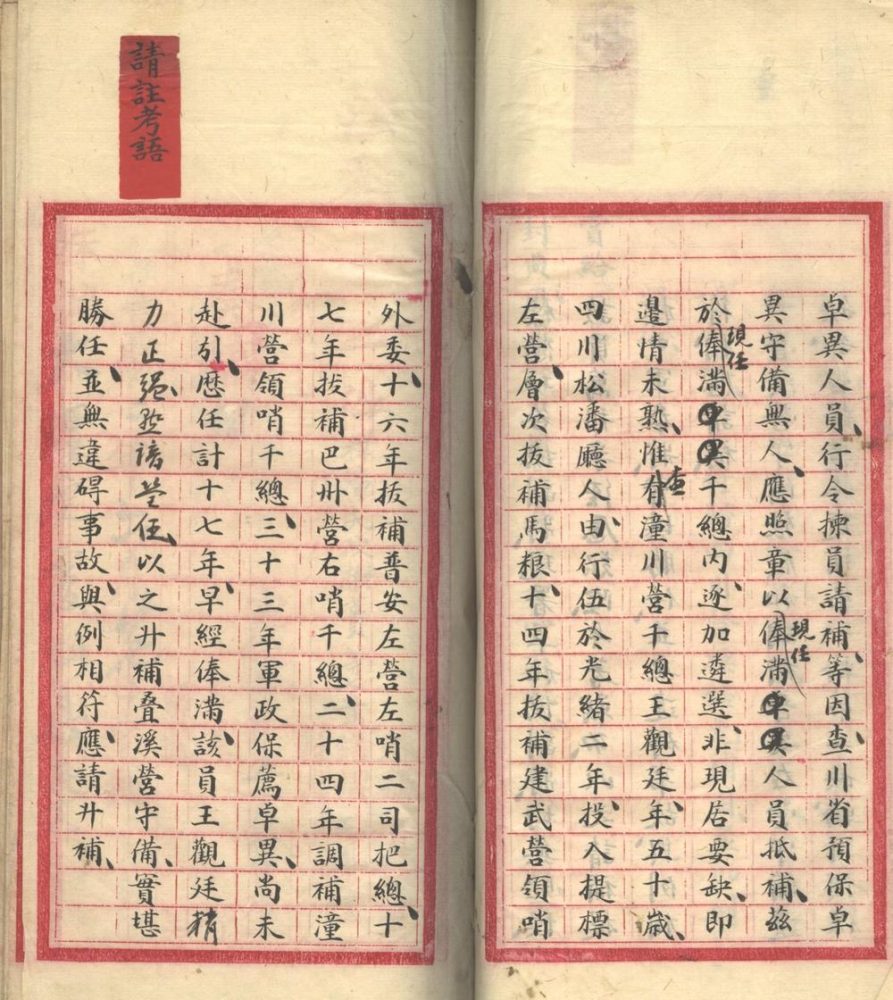 卓異人員行令揀員請補等因查川省預保卓
異守備無人應照章以俸滿卓異人員抵補茲
現任
於俸滿卓異千總內逐加遴選非現居要缺即
現任
邊情未熟惟有潼川營千總王觀廷年五十歲
查
四川松潘廳人由行伍於光緒二年投入提標
左營層次拔補馬粮十四年拔補建武營領哨
外委十六年拔補普安左營左哨二司把總十
七年拔補巴州營右哨千總二十四年調補潼
川營領哨千總三十三年軍政保薦卓異尚未
赴引歷任計十七年早經俸滿該員王觀廷精
力正强熟諳營伍以之升補叠溪營守備實堪
勝任並無違碍事故與例相符應請升補
請註考語